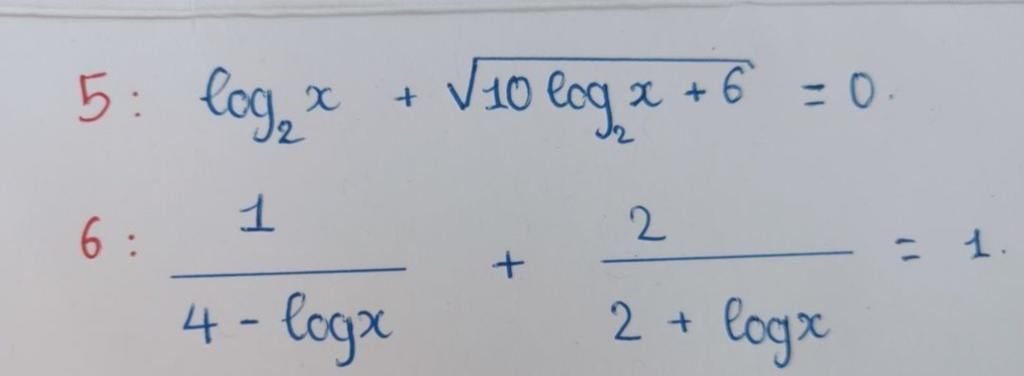 5: log₂x + √(10 log₂x + 6) = 0.
6: 1/(4 - logx) + 2/(2 + logx) = 1.